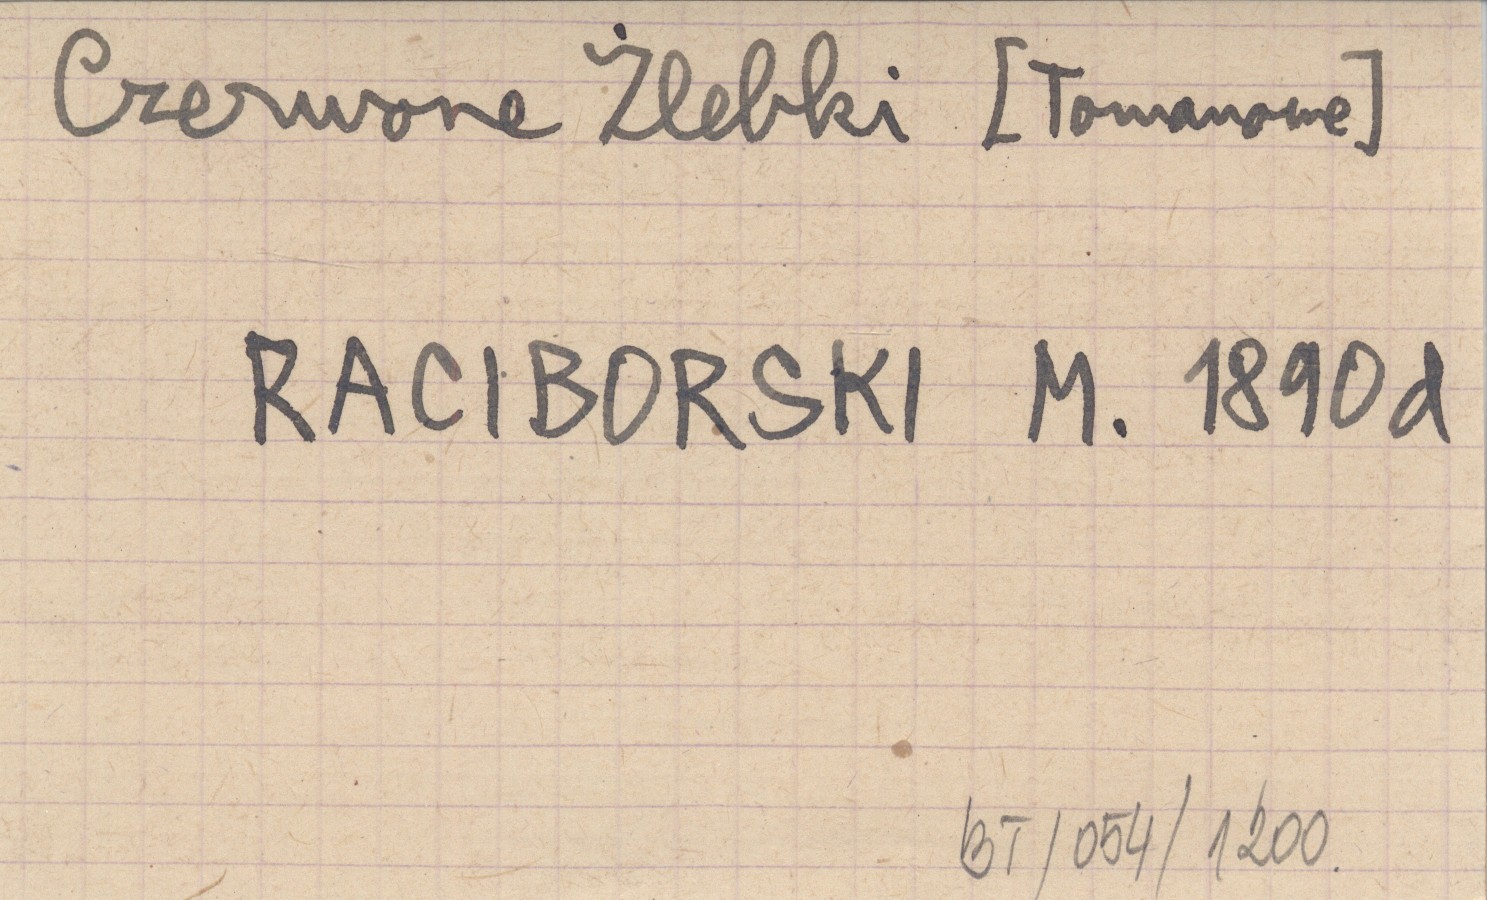 Czerwone Żlebki [Tomanowe]
RACIBORSKI M. 1890d
BT/054/1200.